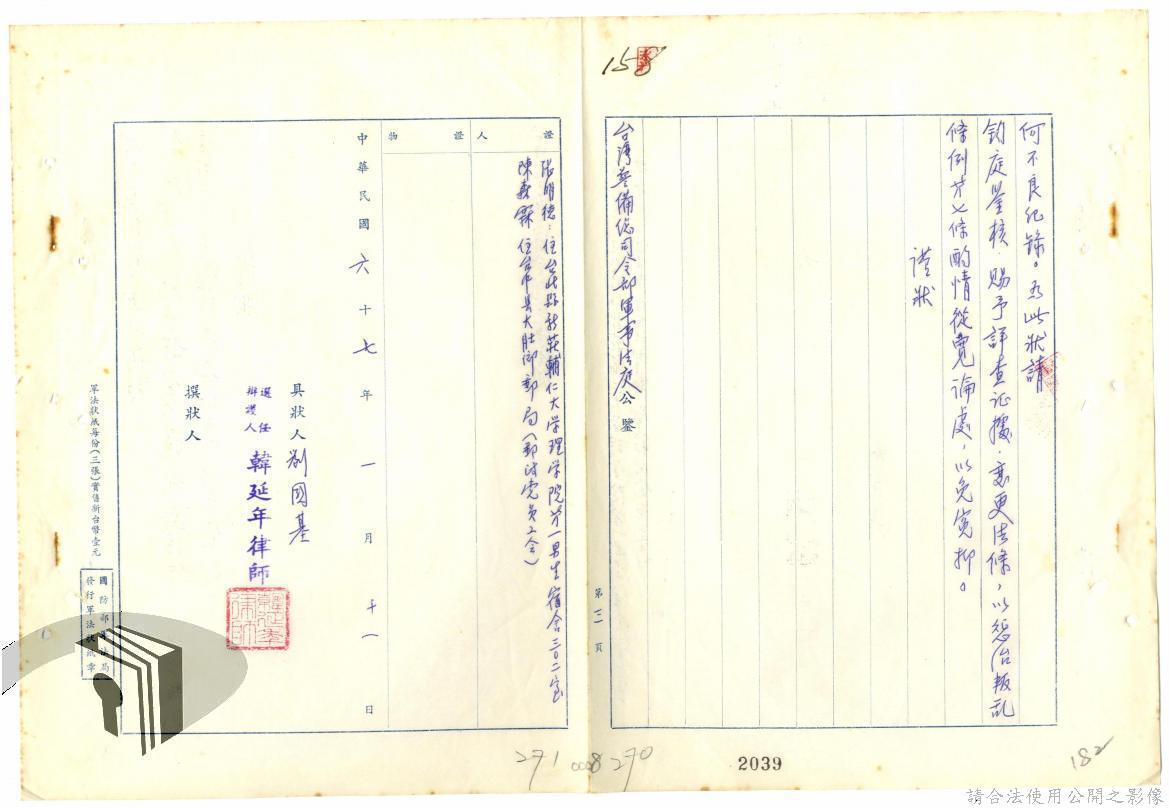 158
何不良紀錄。為此狀請
鈞庭鑒核．賜予詳查証據．變更法條，以懲治叛乱
條例第七條酌情從寬論處，以免冤抑。
謹狀
台灣警備總司令部軍事法庭公鑒
第三頁
證人
張明德：住台北縣新莊輔仁大学理学院第一男生宿舍三〇二室
陳森霖 住台中县大肚鄉郵局（郵政党員工会）
證物
中華民國六十七年一月十一日
具狀人 劉國基
選任
辯護人
韓延年律師
撰狀人
軍法狀紙每份（三張）實售新台幣壹元
國防部軍法局
發行軍法狀紙章
271
270
2039
182
請合法使用公開之影像